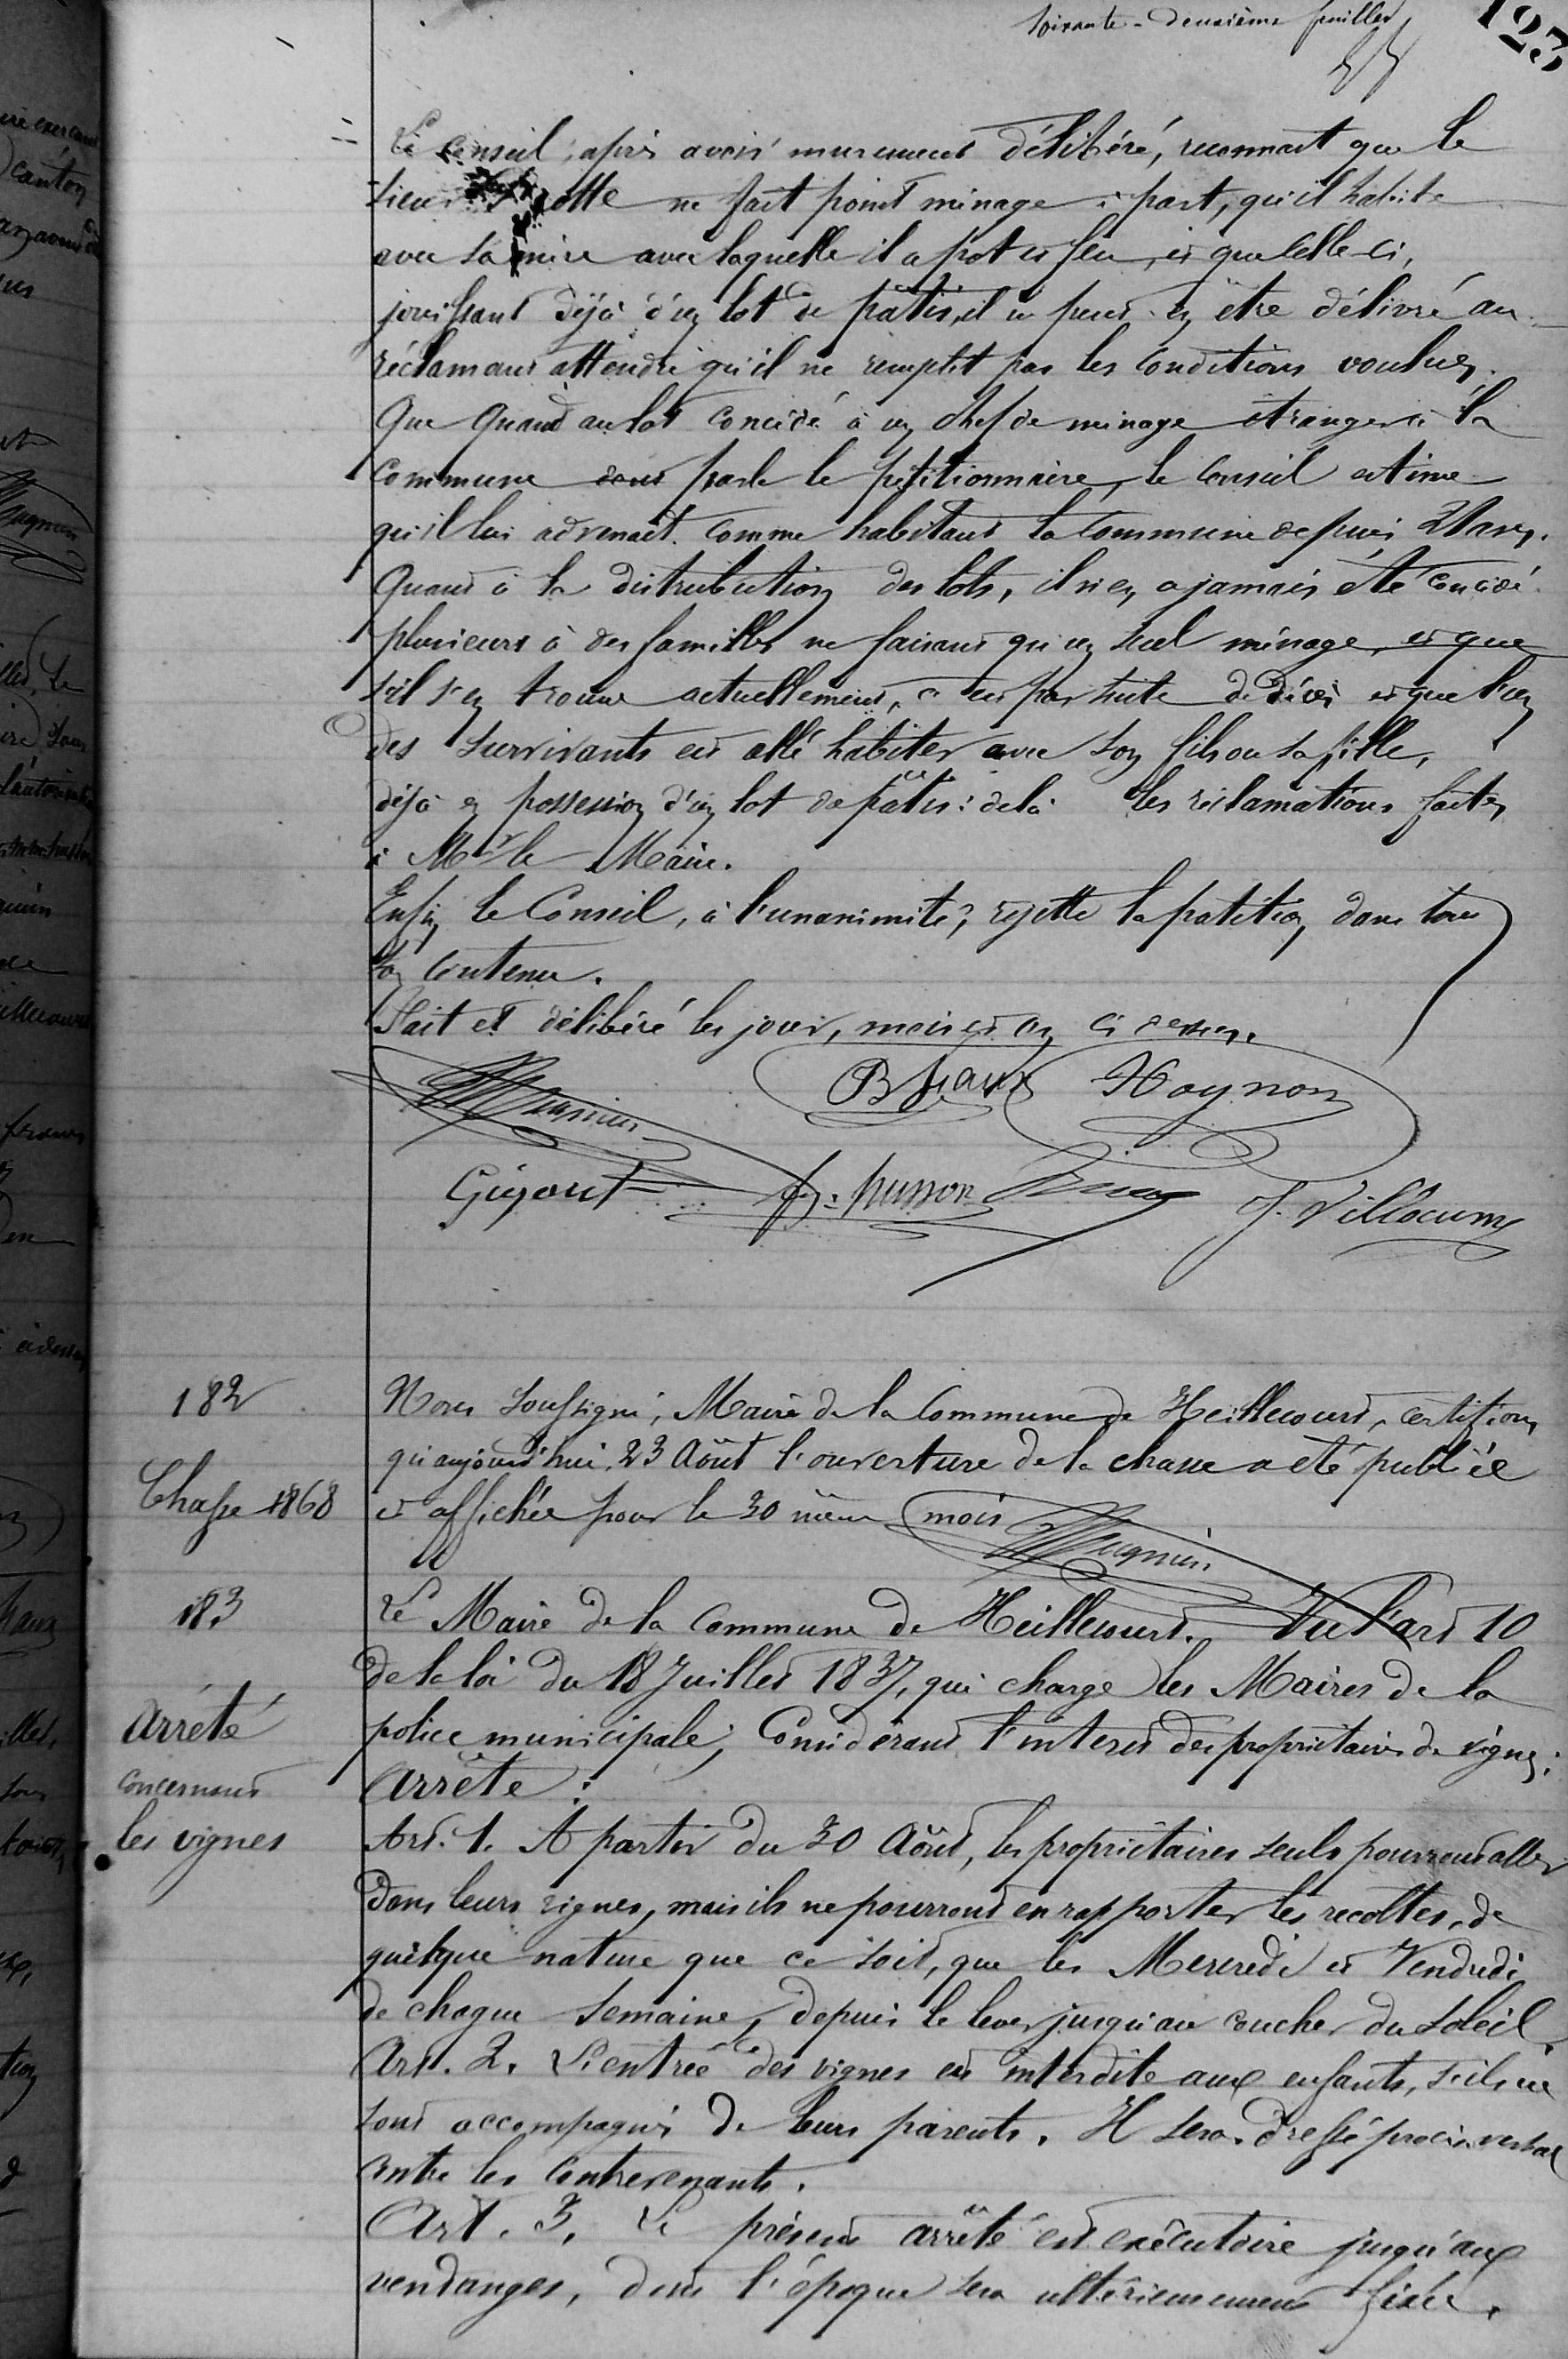 Soixante-deuxième feuillet
123
Le Conseil, après avoir murement délibéré, reconnait que le
sieur ne fait point ménage à part, qu'il habite
avec sa mère avec laquelle il a pot et feu, et que celle-ci,
jouissant déjà d'un lot de pâtis, il ne peut en être délivré au
réclamant attendu qu'il ne remplit pas les conditions voulues.
Que quand au lot concédé à un chef de ménage étranger à la
Commune dont parle le pétitionnaire, le Conseil estime
qu'il lui advenait comme habitant la Commune depuis 2 ans.
Quant à la distribution des lots, il n'en a jamais été concédé
plusieurs à des familles ne faisant qu'un seul ménage, et que
s'il s'en trouve actuellement, c'est par suite de décès et que l'un
des survivants est allé habiter avec son fils ou sa fille,
déjà en possession d'un lot de pâtis: de là les réclamations faites
à Mr le Maire.
Enfin le Conseil, à l'unanimité, rejette la pétition dans tout
son contenu.
Fait et délibéré les jour, mois et an ci dessus.
Mugnier Hoynon
Gigout husson J. Villaume
182
Chasse 1868
Nous soussigné, Maire de la Commune de Heillecourt, certifions
qu'aujourd'hui 23 Août l'ouverture de la chasse a été publiée
et affichée pour le 30 même mois
Mugnier
183
Arrêté
concernant
les vignes
Le Maire de la commune de Heillecourt. Vu l'art 10
de la loi du 18 Juillet 1837, qui charge les Maires de la
police municipale; Considérant l'intérêt des propriétaires de vignes;
Arrête:
Art. 1. A partir du 30 Août, les propriétaires seuls pourront aller
dans leurs vignes, mais ils ne pourront en rapporter les recoltes, de
quelque nature que ce soit, que les Mercredi et Vendredi
de chaque semaine, depuis le lever jusqu'au coucher du soleil.
Art. 2. L'entrée des vignes est interdite aux enfants, s'ils ne
sont accompagnés de leurs parents. Il sera dressé procès verbal
contre les contrevenants.
Art. 3. Le présent arrêté est exécutoire jusqu'aux
vendanges, dont l'époque sera ultérieurement fixée.